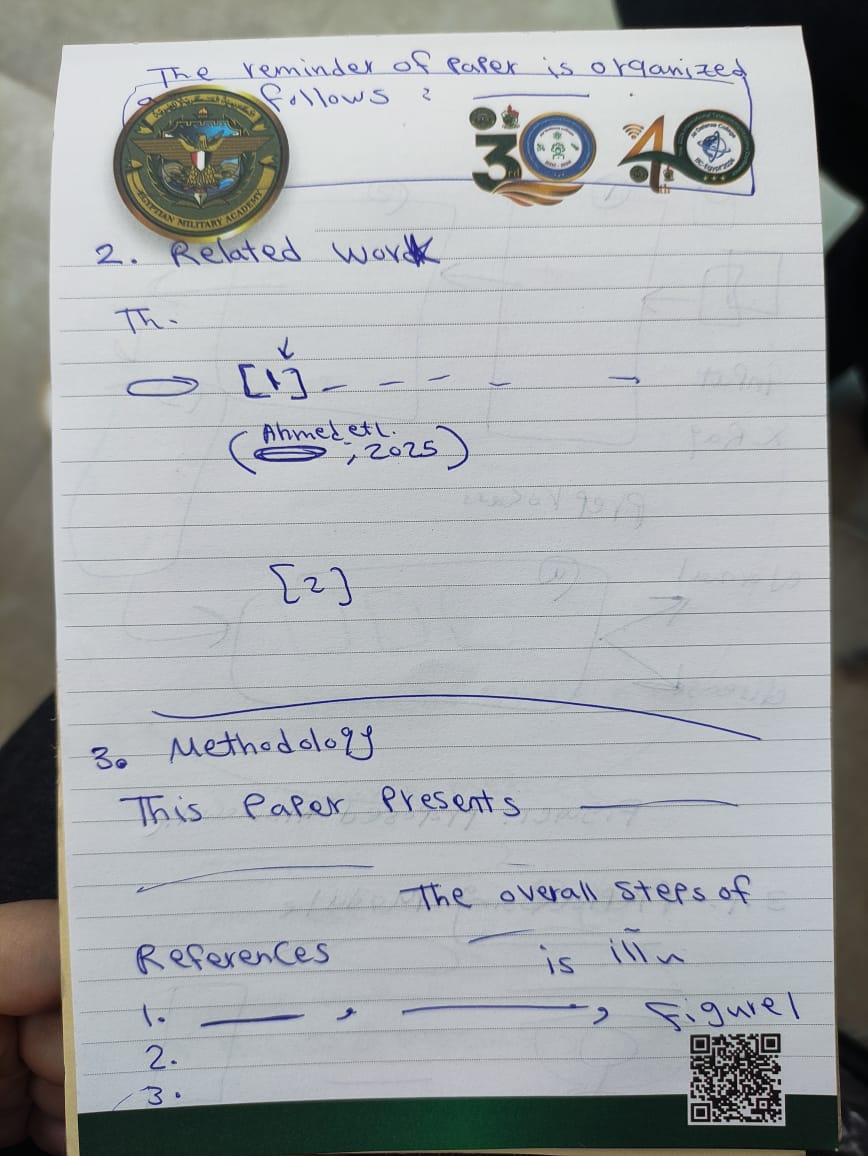 The reminder of Paper is organized
follows :
EGYPTIAN MILITARY ACADEMY
30
rd
40
th
2. Related Work
Th.
[1] - - - - -
(Ahmed etl. , 2025)
[2]
3. Methodology
This Paper Presents
The overall steps of
is illu
Figure1
References
1. , ,
2.
3.